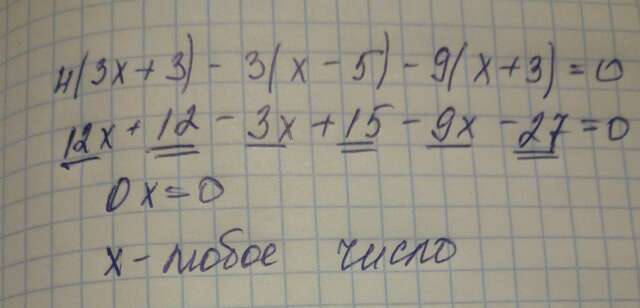 4(3x+3) - 3(x-5) - 9(x+3) = 0
12x + 12 - 3x + 15 - 9x - 27 = 0
0x = 0
x - любое число